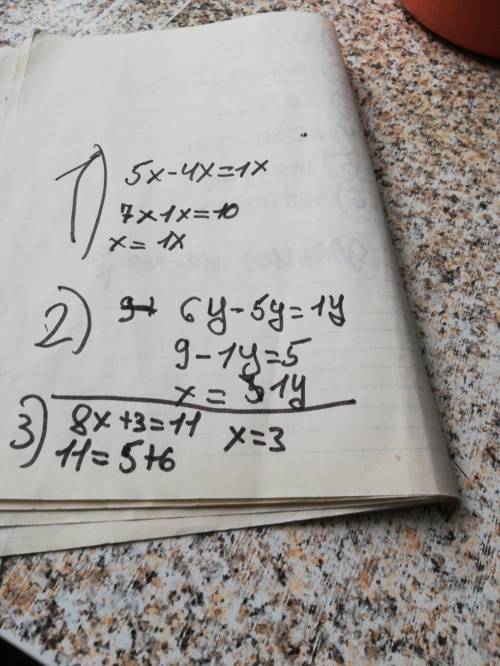 1) 5x-4x=1x
7x1x=10
x=1x
2) 9- 6y-5y=1y
9-1y=5
x=51y
3) 8x+3=11 x=3
11=5+6